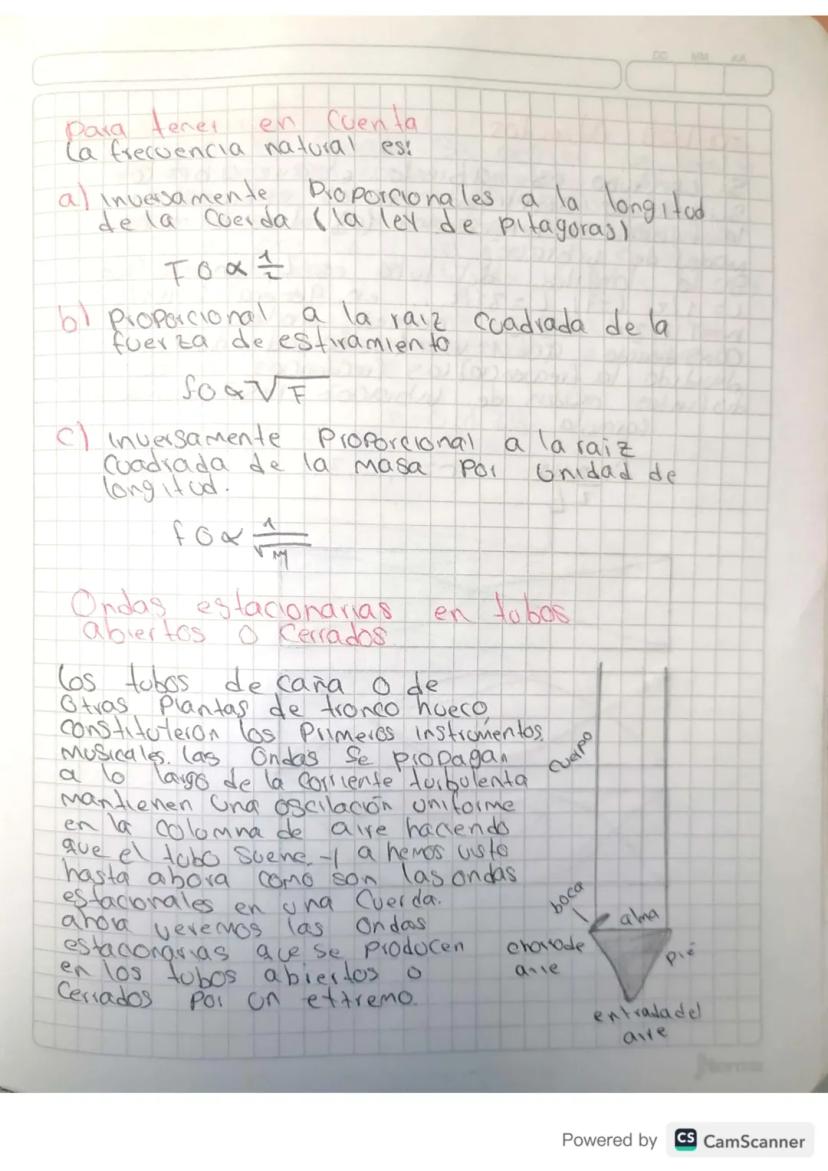 Para tener en cuenta
la frecuencia natural es:
a) inversamente Proporcionales a la longitud
de la cuerda (la ley de pitagoras)
FO ∝ 1/2
b) Proporcional a la raiz cuadrada de la
fuerza de estiramiento
fo ∝ √F
c) inversamente Proporcional a la raiz
cuadrada de la masa por Unidad de
longitud.
fO ∝ 1/√M
Ondas estacionarias en tubos
abiertos o Cerrados
los tubos de caña o de
Otras Plantas de tronco hueco,
constituieron los Primeros instrumentos
musicales. las Ondas Se propagan
a lo largo de la corriente turbulenta
mantienen una oscilación uniforme
en la columna de aire haciendo
que el tubo suene. ya hemos visto
hasta ahora como son las ondas
estacionales en una Cuerda.
ahora veremos las ondas
estacionarias que se producen
en los tubos abiertos o
Cerrados Por un extremo.
cuerpo
boca
alma
chorro de
aire
pie
entrada del
aire
DD MM AA
Norma
Powered by CS CamScanner